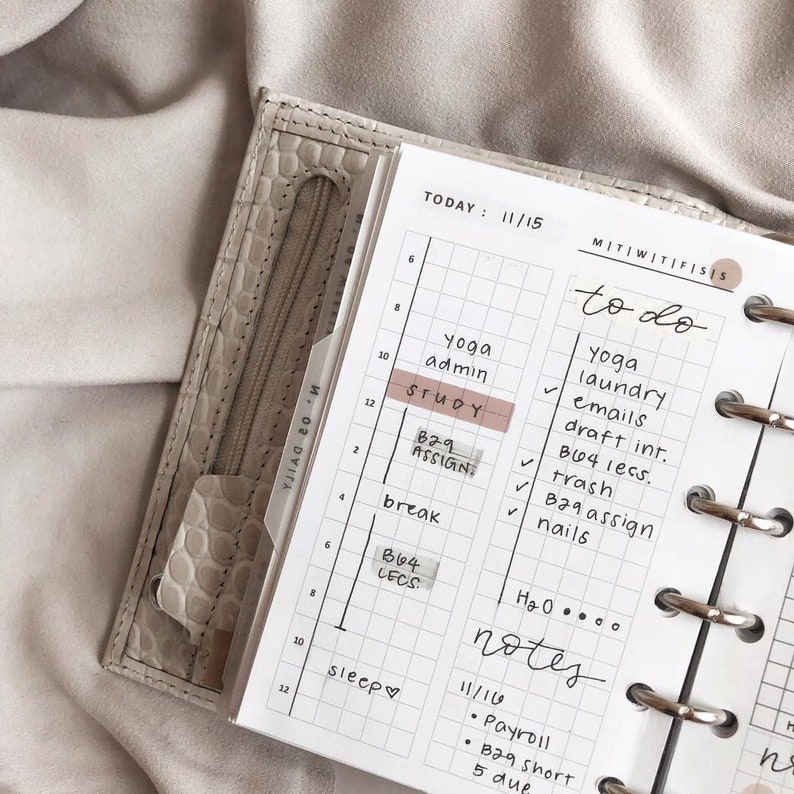 TODAY: 11/15
M|T|W|T|F|S|S
6
8
10
12
2
4
6
8
10
12
yoga
admin
STUDY
B29
ASSIGN.
break
B64
LECS.
sleep♡
to do
yoga
laundry
✓ emails
draft int.
B64 lecs.
✓ trash
✓ B29 assign
✓ nails
H2O ●●○○
notes
11/16
• Payroll
• B29 short
5 due
N° 05 DAILY